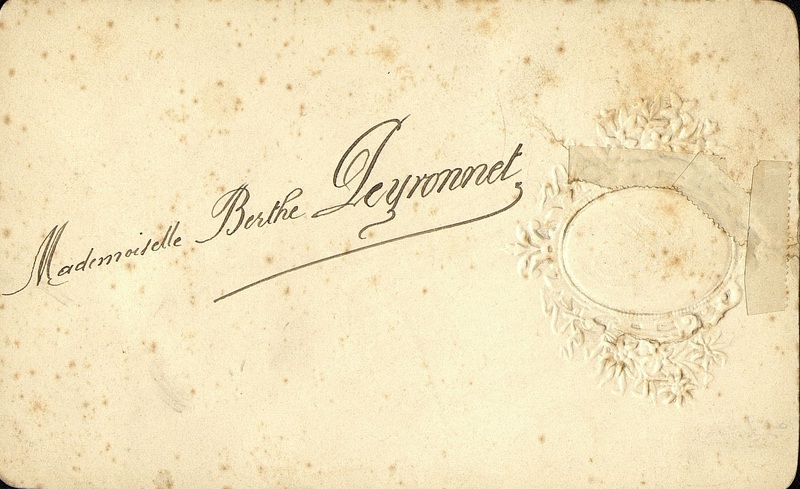 Mademoiselle Berthe Peyronnet